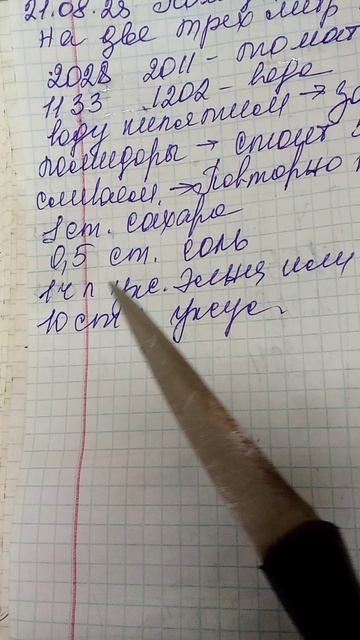 21.08.28
на две трех литр
2028 2011 - томат
1133 1202 - вода
воду кипятим → за
помидоры → стоит
сливаем. → Повторно
1 ст. сахара
0,5 ст. соль
1 ч л укс. или
10 ст уксус